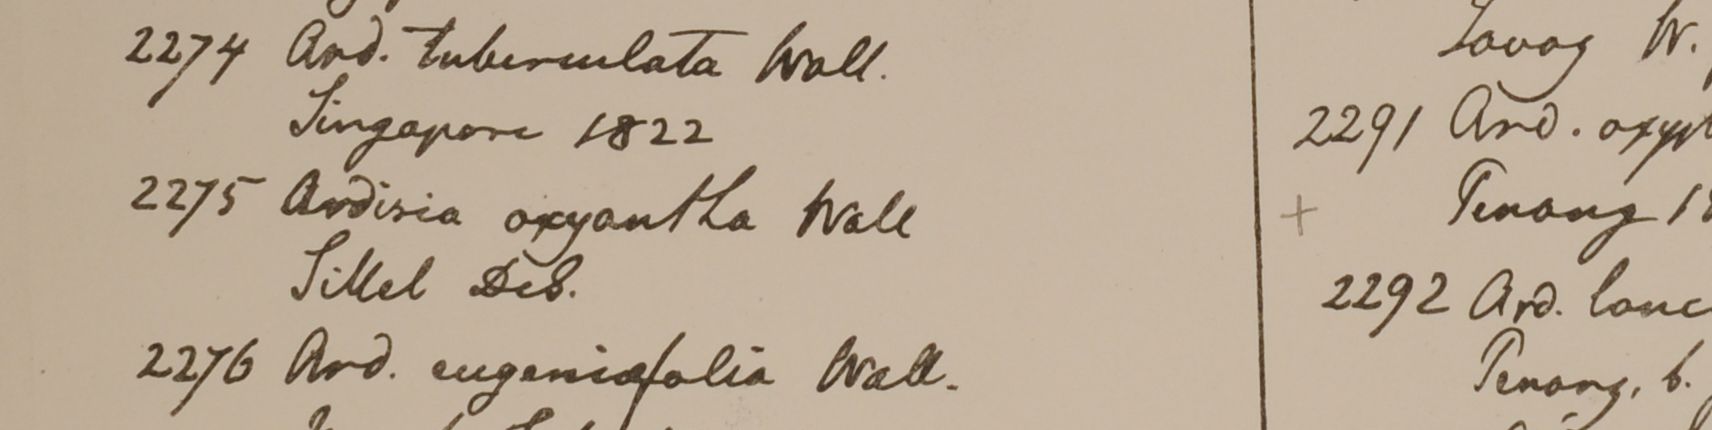 2274 Ard. tuberculata Wall.
Singapore 1822
2275 Ardisia oxyantha Wall
Sillet DeS.
2276 Ard. eugeniæfolia Wall.
Tavoy W.
2291 Ard.
+ Penang
2292 Ard. lanc
Penang. b.